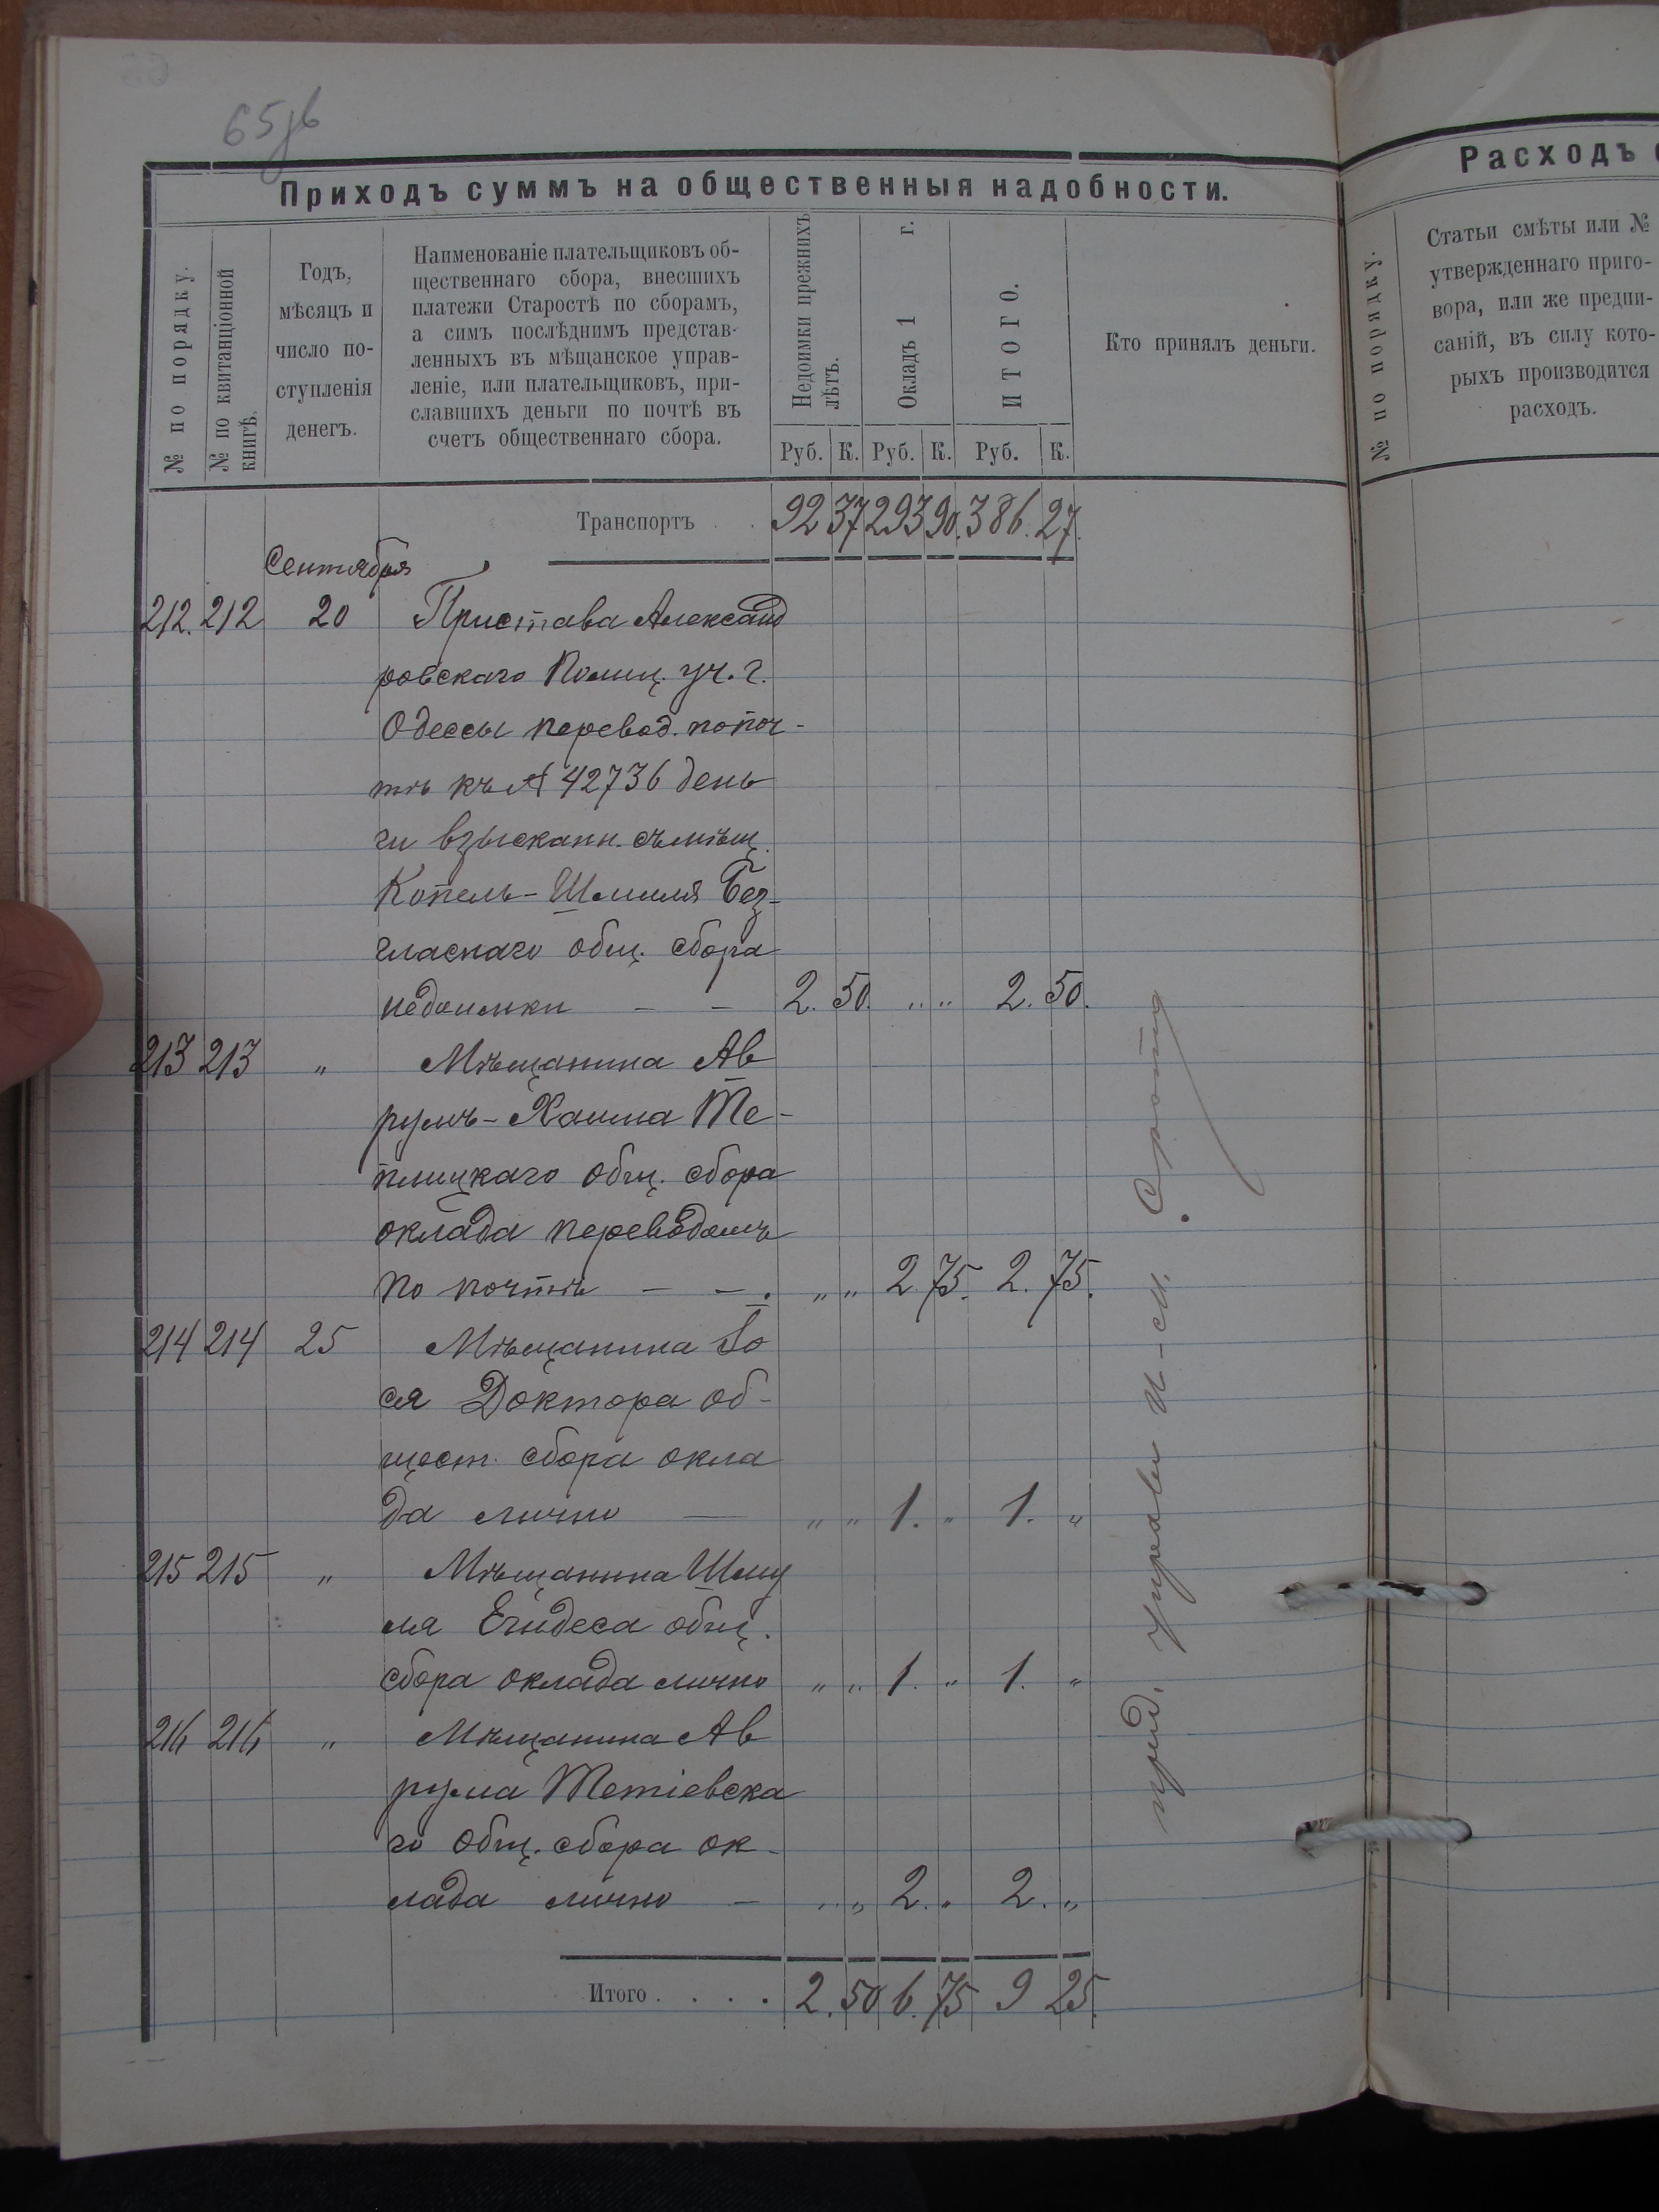 65 зв
Приходъ суммъ на общественныя надобности.
№ по порядку.
№ по квитанціонной книгѣ.
Годъ,
мѣсяцъ и
число по-
ступленія
денегъ.
Наименованіе плательщиковъ об-
щественнаго сбора, внесшихъ
платежи Старостѣ по сборамъ,
а симъ послѣднимъ представ-
ленныхъ въ мѣщанское управ-
леніе, или плательщиковъ, при-
славшихъ деньги по почтѣ въ
счетъ общественнаго сбора.
Недоимки прежнихъ лѣтъ.
Окладъ 1 г.
ИТОГО.
Руб. К. Руб. К. Руб. К.
Кто принялъ деньги.
Транспортъ . . 92 37 293 90. 386. 27.
Сентября
212. 212 20 Пристава Александ
ровскаго Полиц. уч. г.
Одессы перевод. по поч-
тѣ къ № 42736 день
ги взысканн. съ мѣщ.
Копель-Шмиля Без-
гласнаго общ. сбора
недоимки — — 2. 50. „ „ 2. 50.
213 213 „ Мѣщанина Ав
румъ-Хаима Те-
плицкаго общ. сбора
оклада переводомъ
по почтѣ — —. „ „ 2 75. 2. 75.
214 214 25 Мѣщанина Іо
ся Доктора об-
щест. сбора окла
да лично — „ „ 1. „ 1. „
215 215 „ Мѣщанина Шму
ля Егидеса общ.
сбора оклада лично „ „ 1. „ 1. „
216 216 „ Мѣщанина Ав
рума Тетіевска
го общ. сбора ок-
лада лично — „ „ 2. „ 2. „
Итого . . . . 2. 50 6. 75 9 25.
Управы
Расходъ
№ по порядку.
Статьи смѣты или №
утвержденнаго приго-
вора, или же предпи-
саній, въ силу кото-
рыхъ производится
расходъ.